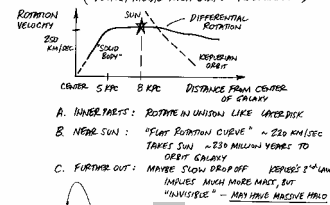 SUN
DIFFERENTIAL
ROTATION
ROTATION
VELOCITY
250
KM/SEC
"SOLID
BODY"
KEPLERIAN
ORBIT
CENTER 5 KPC 8 KPC DISTANCE FROM CENTER
OF GALAXY
A. INNER PARTS: ROTATE IN UNISON LIKE
B. NEAR SUN: "FLAT ROTATION CURVE" ~ 220 KM/SEC
TAKES SUN ~230 MILLION YEARS TO
ORBIT GALAXY
C. FURTHER OUT: MAYBE SLOW DROP OFF KEPLER'S
IMPLIES MUCH MORE MASS, BUT
"INVISIBLE" - MAY HAVE MASSIVE HALO